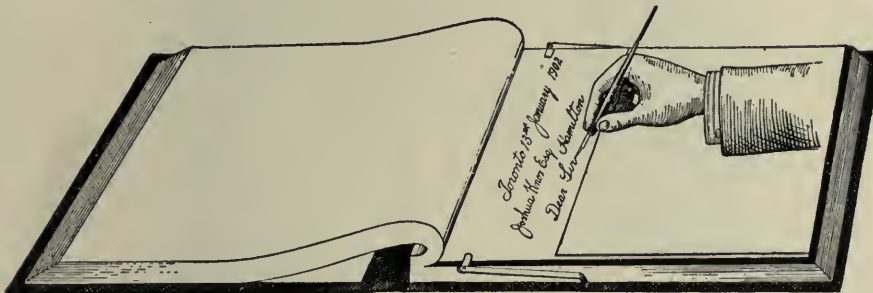 Toronto 13th January 1902
Joshua Knox Esq Hamilton
Dear Sir